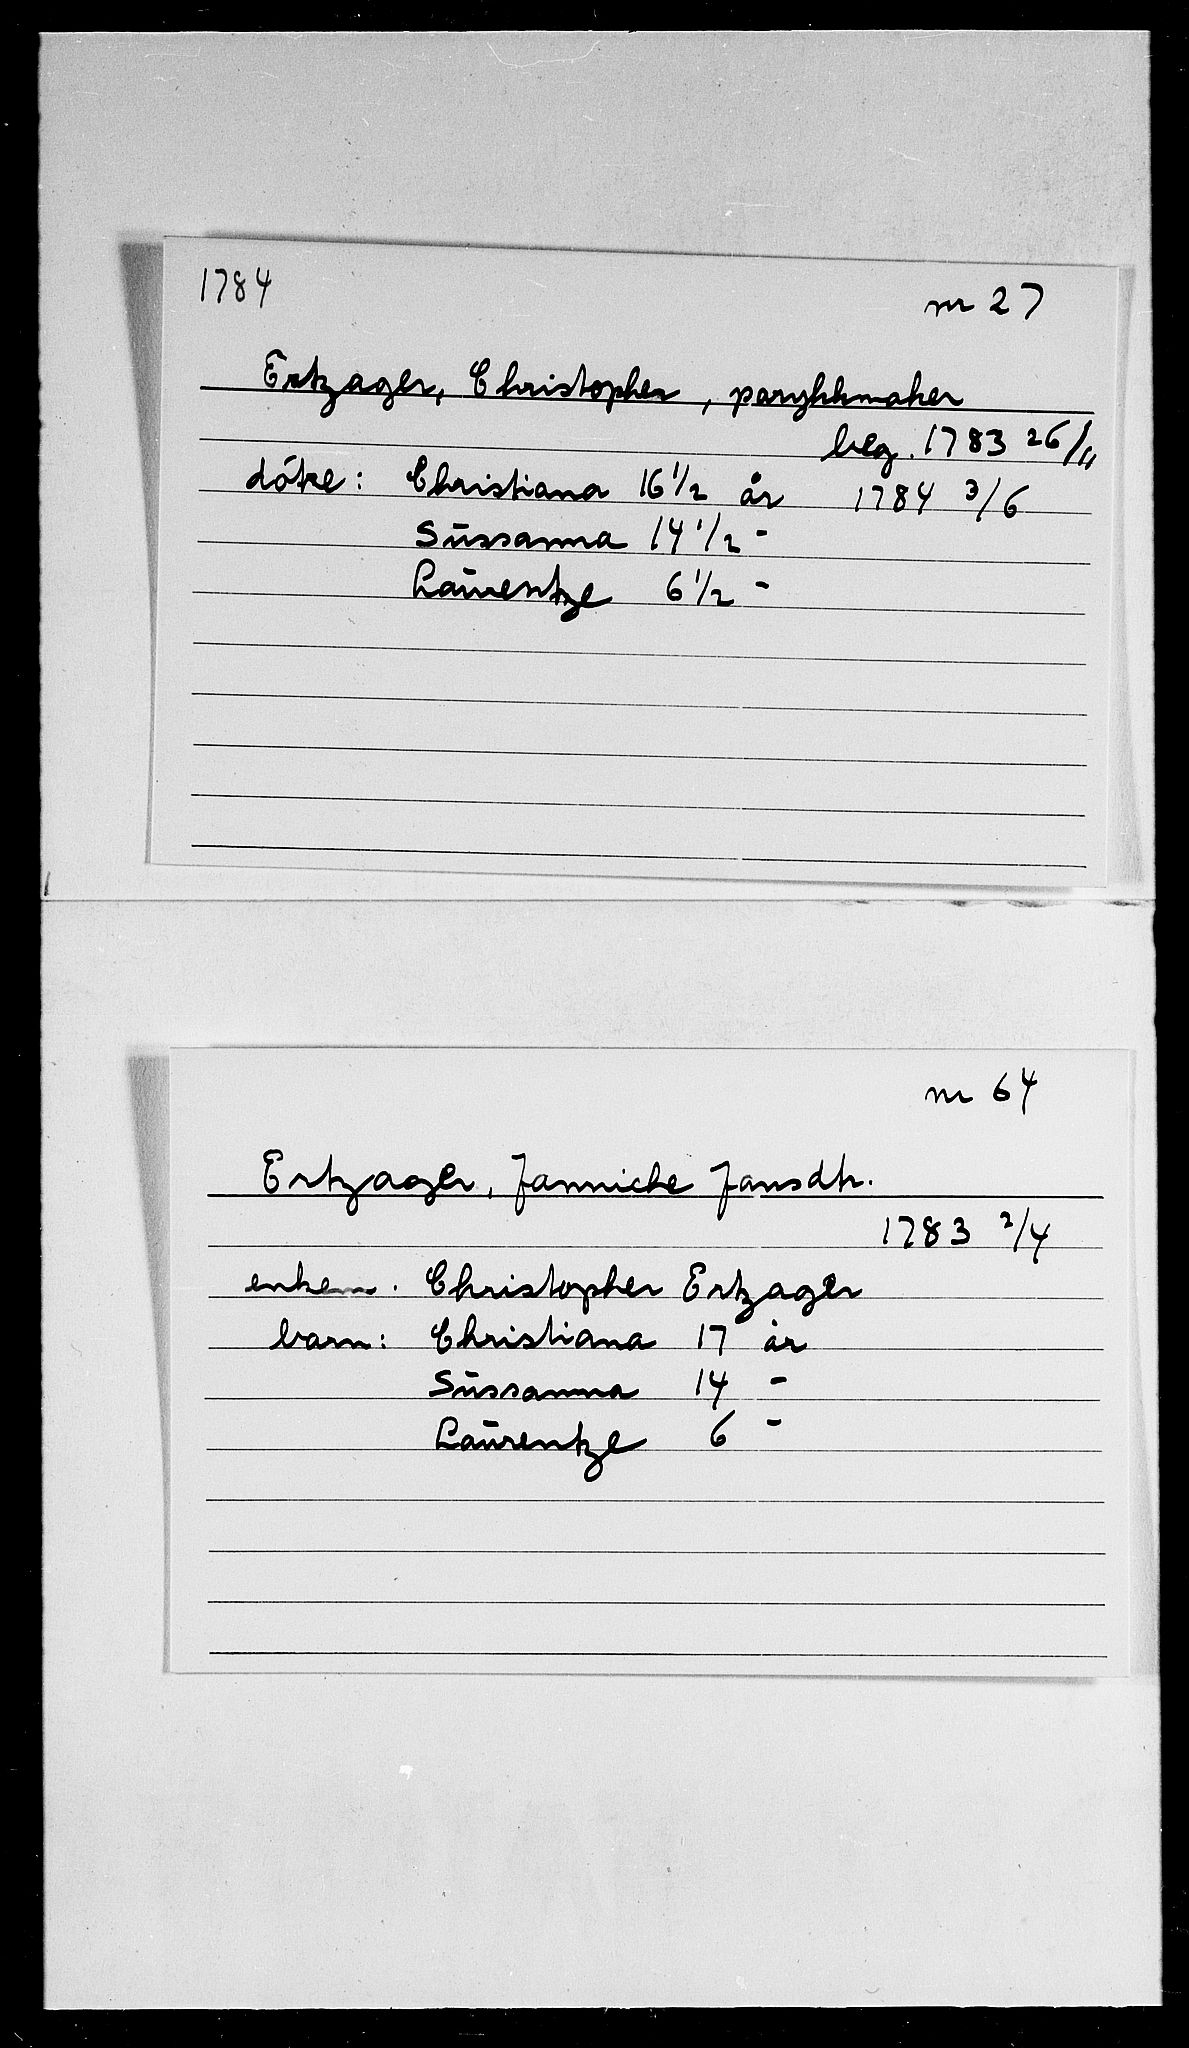 1784
nr 27
Ertzager, Christopher, parykkmaker
beg. 1783 26/11
döke: Christiana 16 1/2 år 1784 3/6
Sūssanna 14 1/2 -
Laūrentze 6 1/2 -
nr 64
Ertzager, Janniche Jansdtr.
1783 2/4
enkem. Christopher Ertzager
barn: Christiana 17 år
Sūssanna 14 -
Laūrentze 6 -